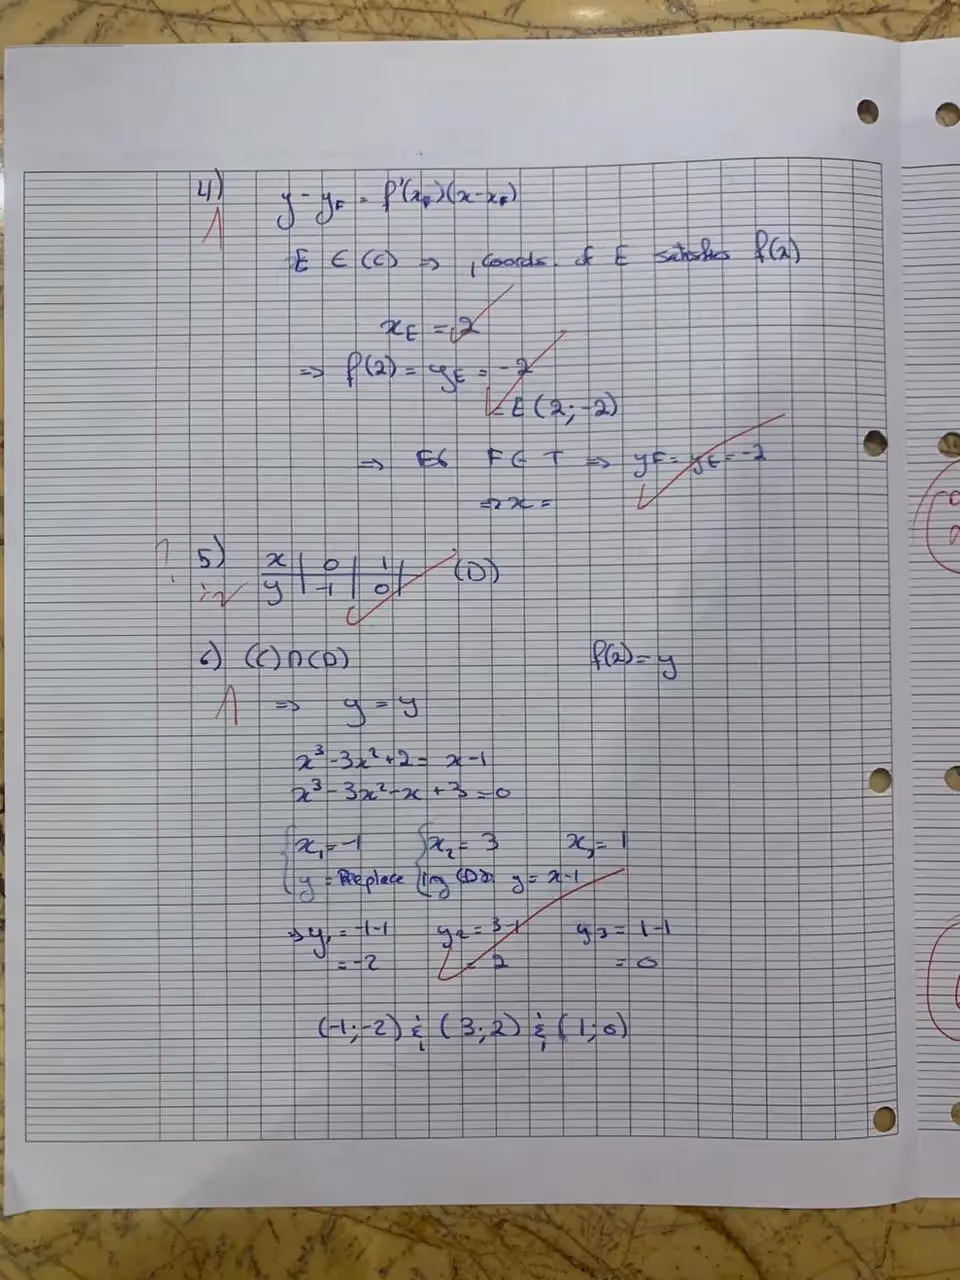 4) y - y_F = f'(x_F)(x - x_F)
1
E ∈ (C) ⇒ , coords. of E satisfies f(x)
x_E = 2
⇒ f(2) = y_E = -2
E(2; -2)
⇒ E& F ∈ T ⇒ y_F = y_E = -2
⇒ x =
5) x | 0 | 1 | (D)
y | -1 | 0 |
6) (C)∩(D) f(x) = y
1
⇒ y = y
x³ - 3x² + 2 = x - 1
x³ - 3x² - x + 3 = 0
x₁ = -1 x₂ = 3 x₃ = 1
y = Replace in (D) y = x - 1
⇒ y₁ = -1-1 y₂ = 3-1 y₃ = 1-1
= -2 = 2 = 0
(-1; -2) & (3; 2) & (1; 0)